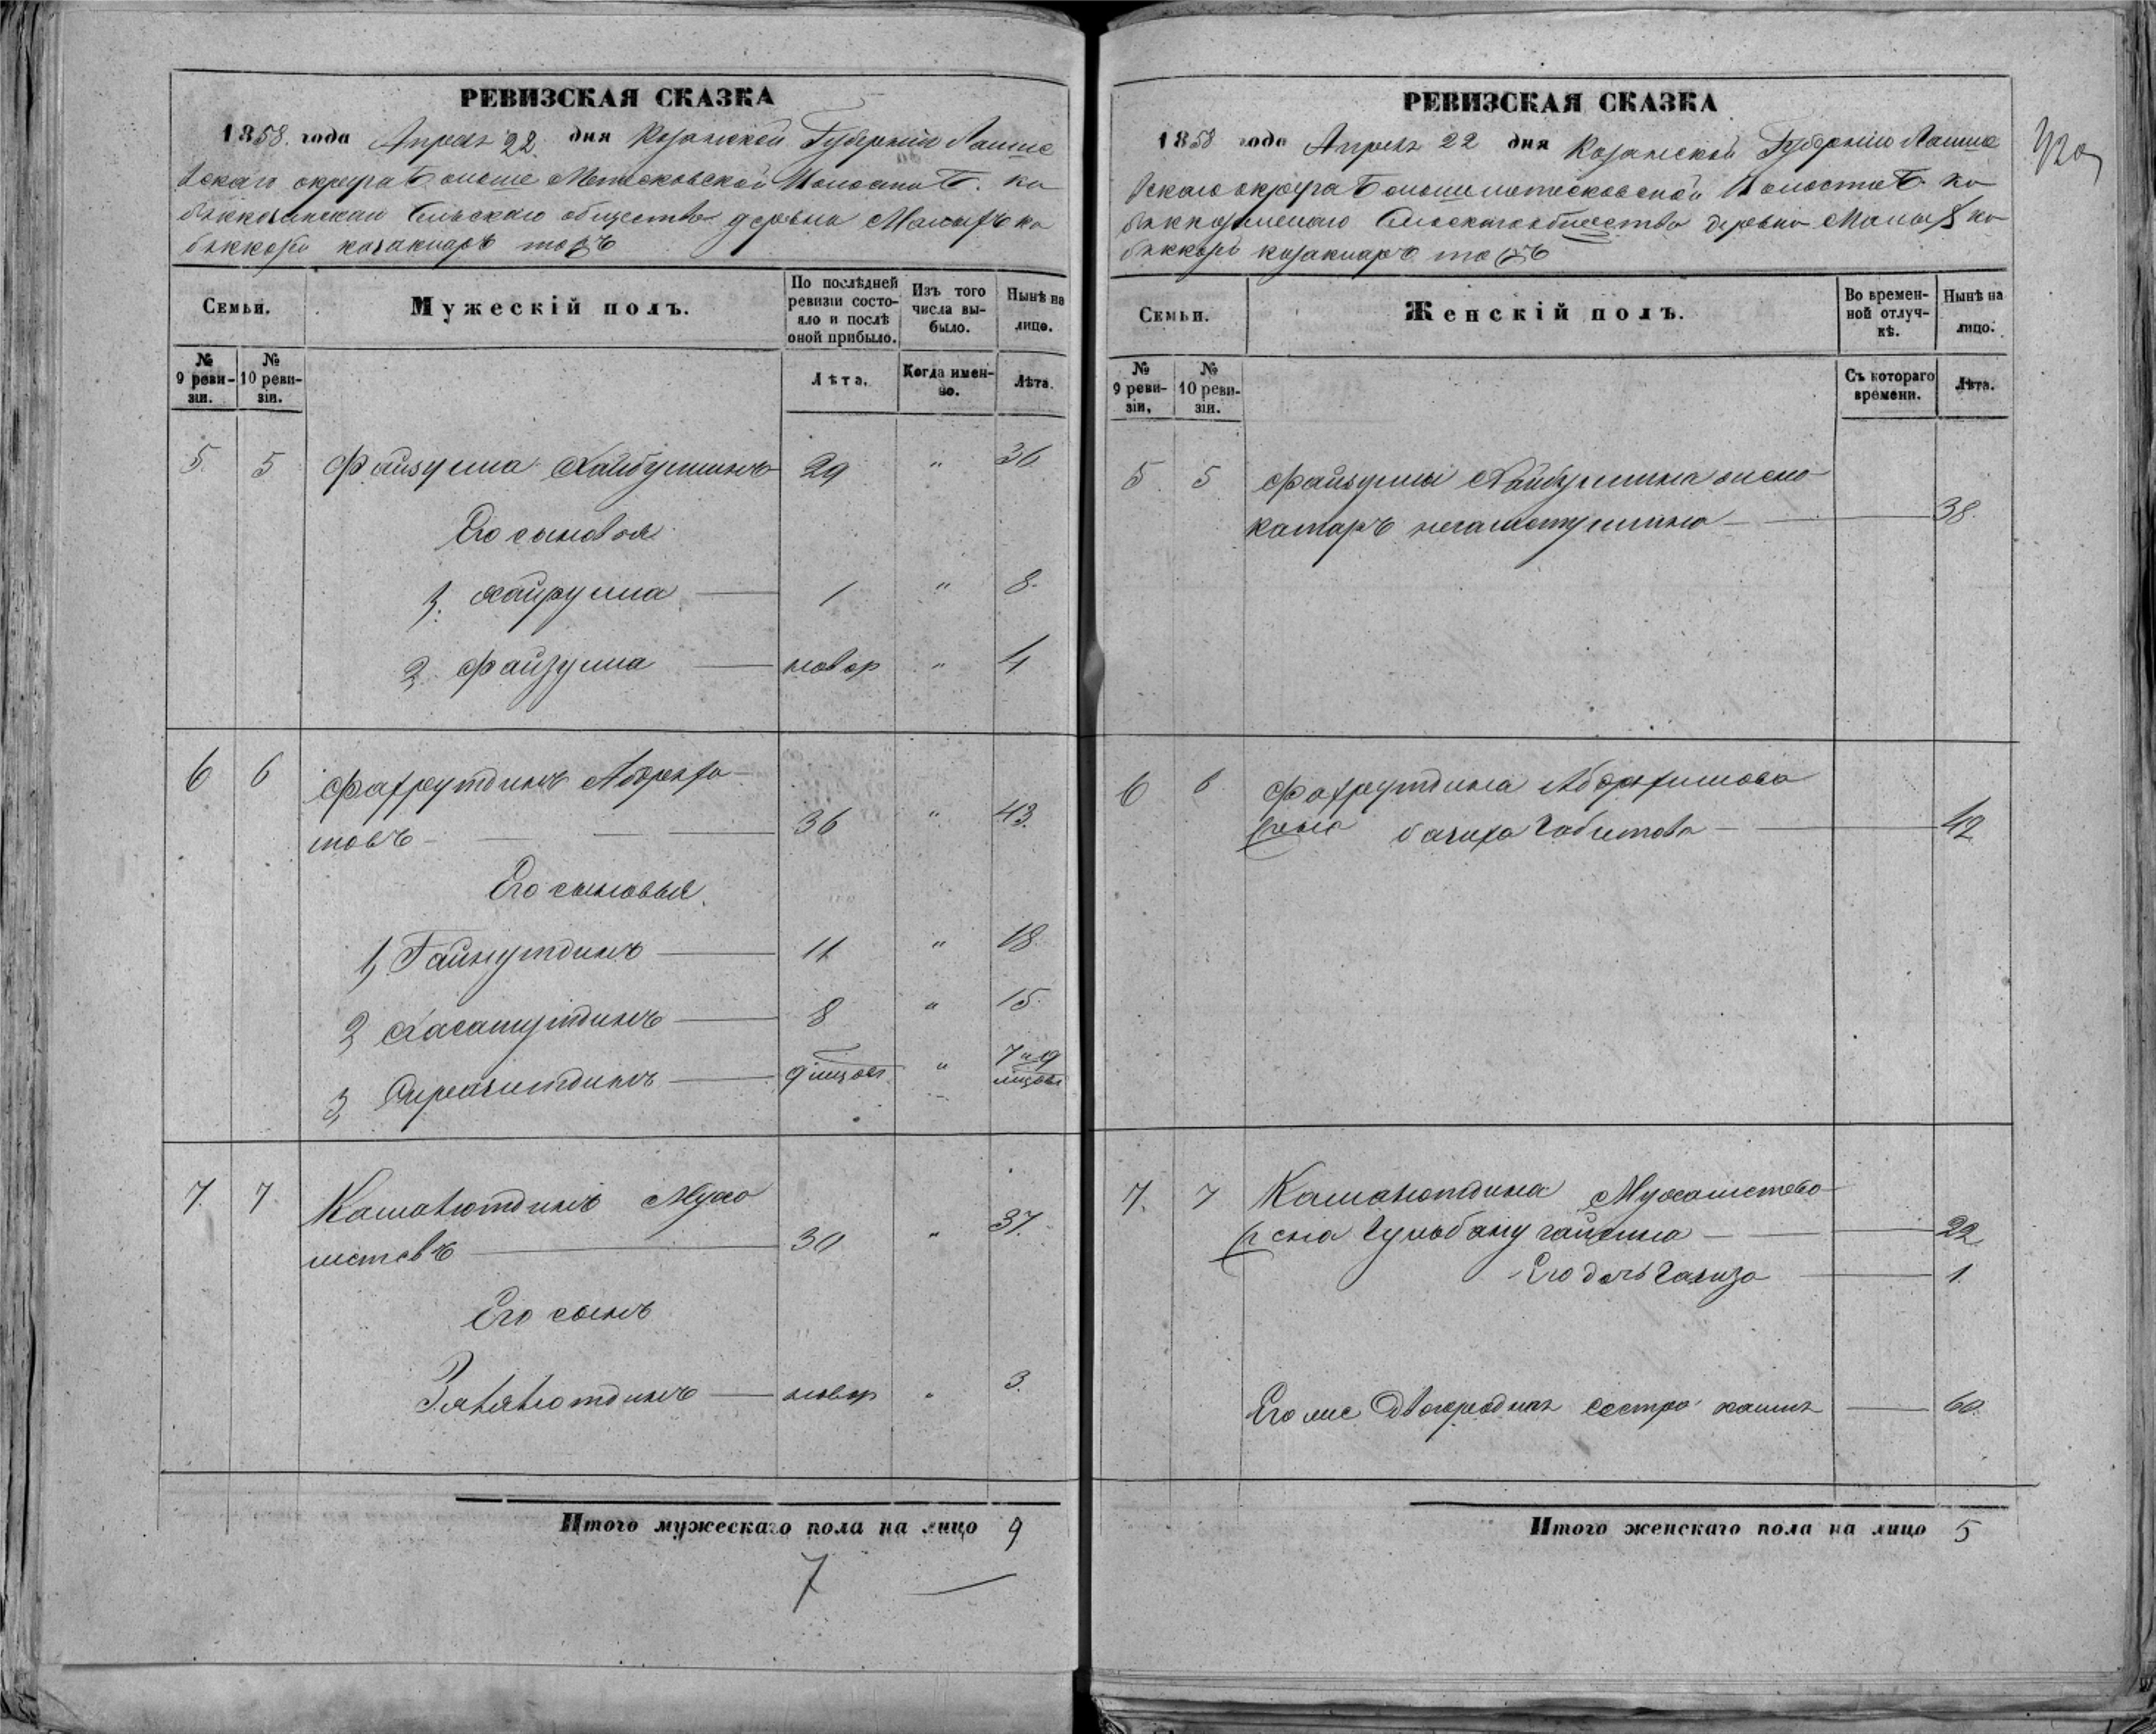 РЕВИЗСКАЯ СКАЗКА
1858 года Апреля 22 дня Казанской Губернии Лаише
вскаго округа Большеметесковской Волости Б. ко
беккозинскаго Сельскаго общества деревни Малыхъ ко
беккози казакларъ тожъ
Семьи.
Мужескій полъ.
По послѣдней ревизіи состо-
яло и послѣ
оной прибыло.
Изъ того
числа вы-
было.
Нынѣ на
лицо.
№
9 реви-
зіи.
№
10 реви-
зіи.
Лѣта.
Когда имен-
но.
Лѣта.
5. 5 Файзулла Хайбуллинъ 29 " 36
Его сыновья
1. Хайрулла — 1 " 8.
2. Файзулла — новор " 4
6 6 Фахрутдинъ Абдрехи
мовъ — 36 " 43.
Его сыновья.
1, Гайнутдинъ — 11 " 18.
2, Хасанутдинъ — 8 " " 15.
3, Сиразитдинъ — 9 мѣсяц " 7 и 9
мѣсяц
7. 7 Камалютдинъ Муха
метевъ — 30 " 37.
Его сынъ
Зялялютдинъ — новор " 3.
Итого мужескаго пола на лицо 9
7 —
РЕВИЗСКАЯ СКАЗКА
1858 года Апреля 22 дня Казанской Губернии Лаише
вскаго округа Большеметесковской Волости Б. ко
беккозинскаго Сельскаго общества деревни Малыхъ ко
беккози казакларъ тожъ
Семьи.
Женскій полъ.
Во времен-
ной отлуч-
кѣ.
Нынѣ на
лицо.
№
9 реви-
зіи.
№
10 реви-
зіи.
Съ котораго
времени.
Лѣта.
5. 5 Файзуллы Хайбуллина жена
камаръ — 38.
6 6 Фахрутдина Абдрехимова
жена Габитова — 42
7. 7 Камалютдина Мухаметева
жена Гульбану — 22
Его дочь Гализа — 1.
Его же двоюродная сестра — 60.
Итого женскаго пола на лицо 5